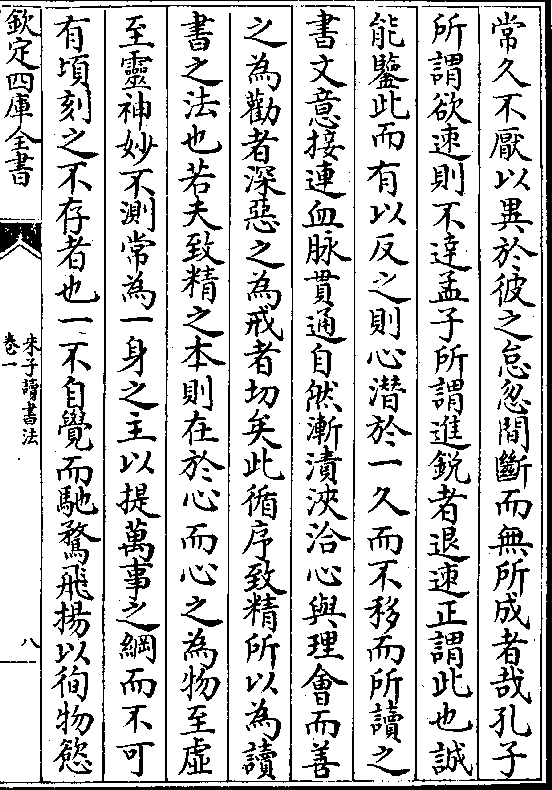 常久不厭以異於彼之怠忽間斷而無所成者哉孔子
所謂欲速則不達孟子所謂進銳者退速正謂此也誠
能鑒此而有以反之則心潛於一久而不移而所讀之
書文意接連血脉貫通自然漸漬浹洽心與理會而善
之為勸者深惡之為戒者切矣此循序致精所以為讀
書之法也若夫致精之本則在於心而心之為物至虛
至靈神妙不測常為一身之主以提萬事之綱而不可
有頃刻之不存者也一不自覺而馳騖飛揚以徇物慾
欽定四庫全書
朱子讀書法
卷一
八